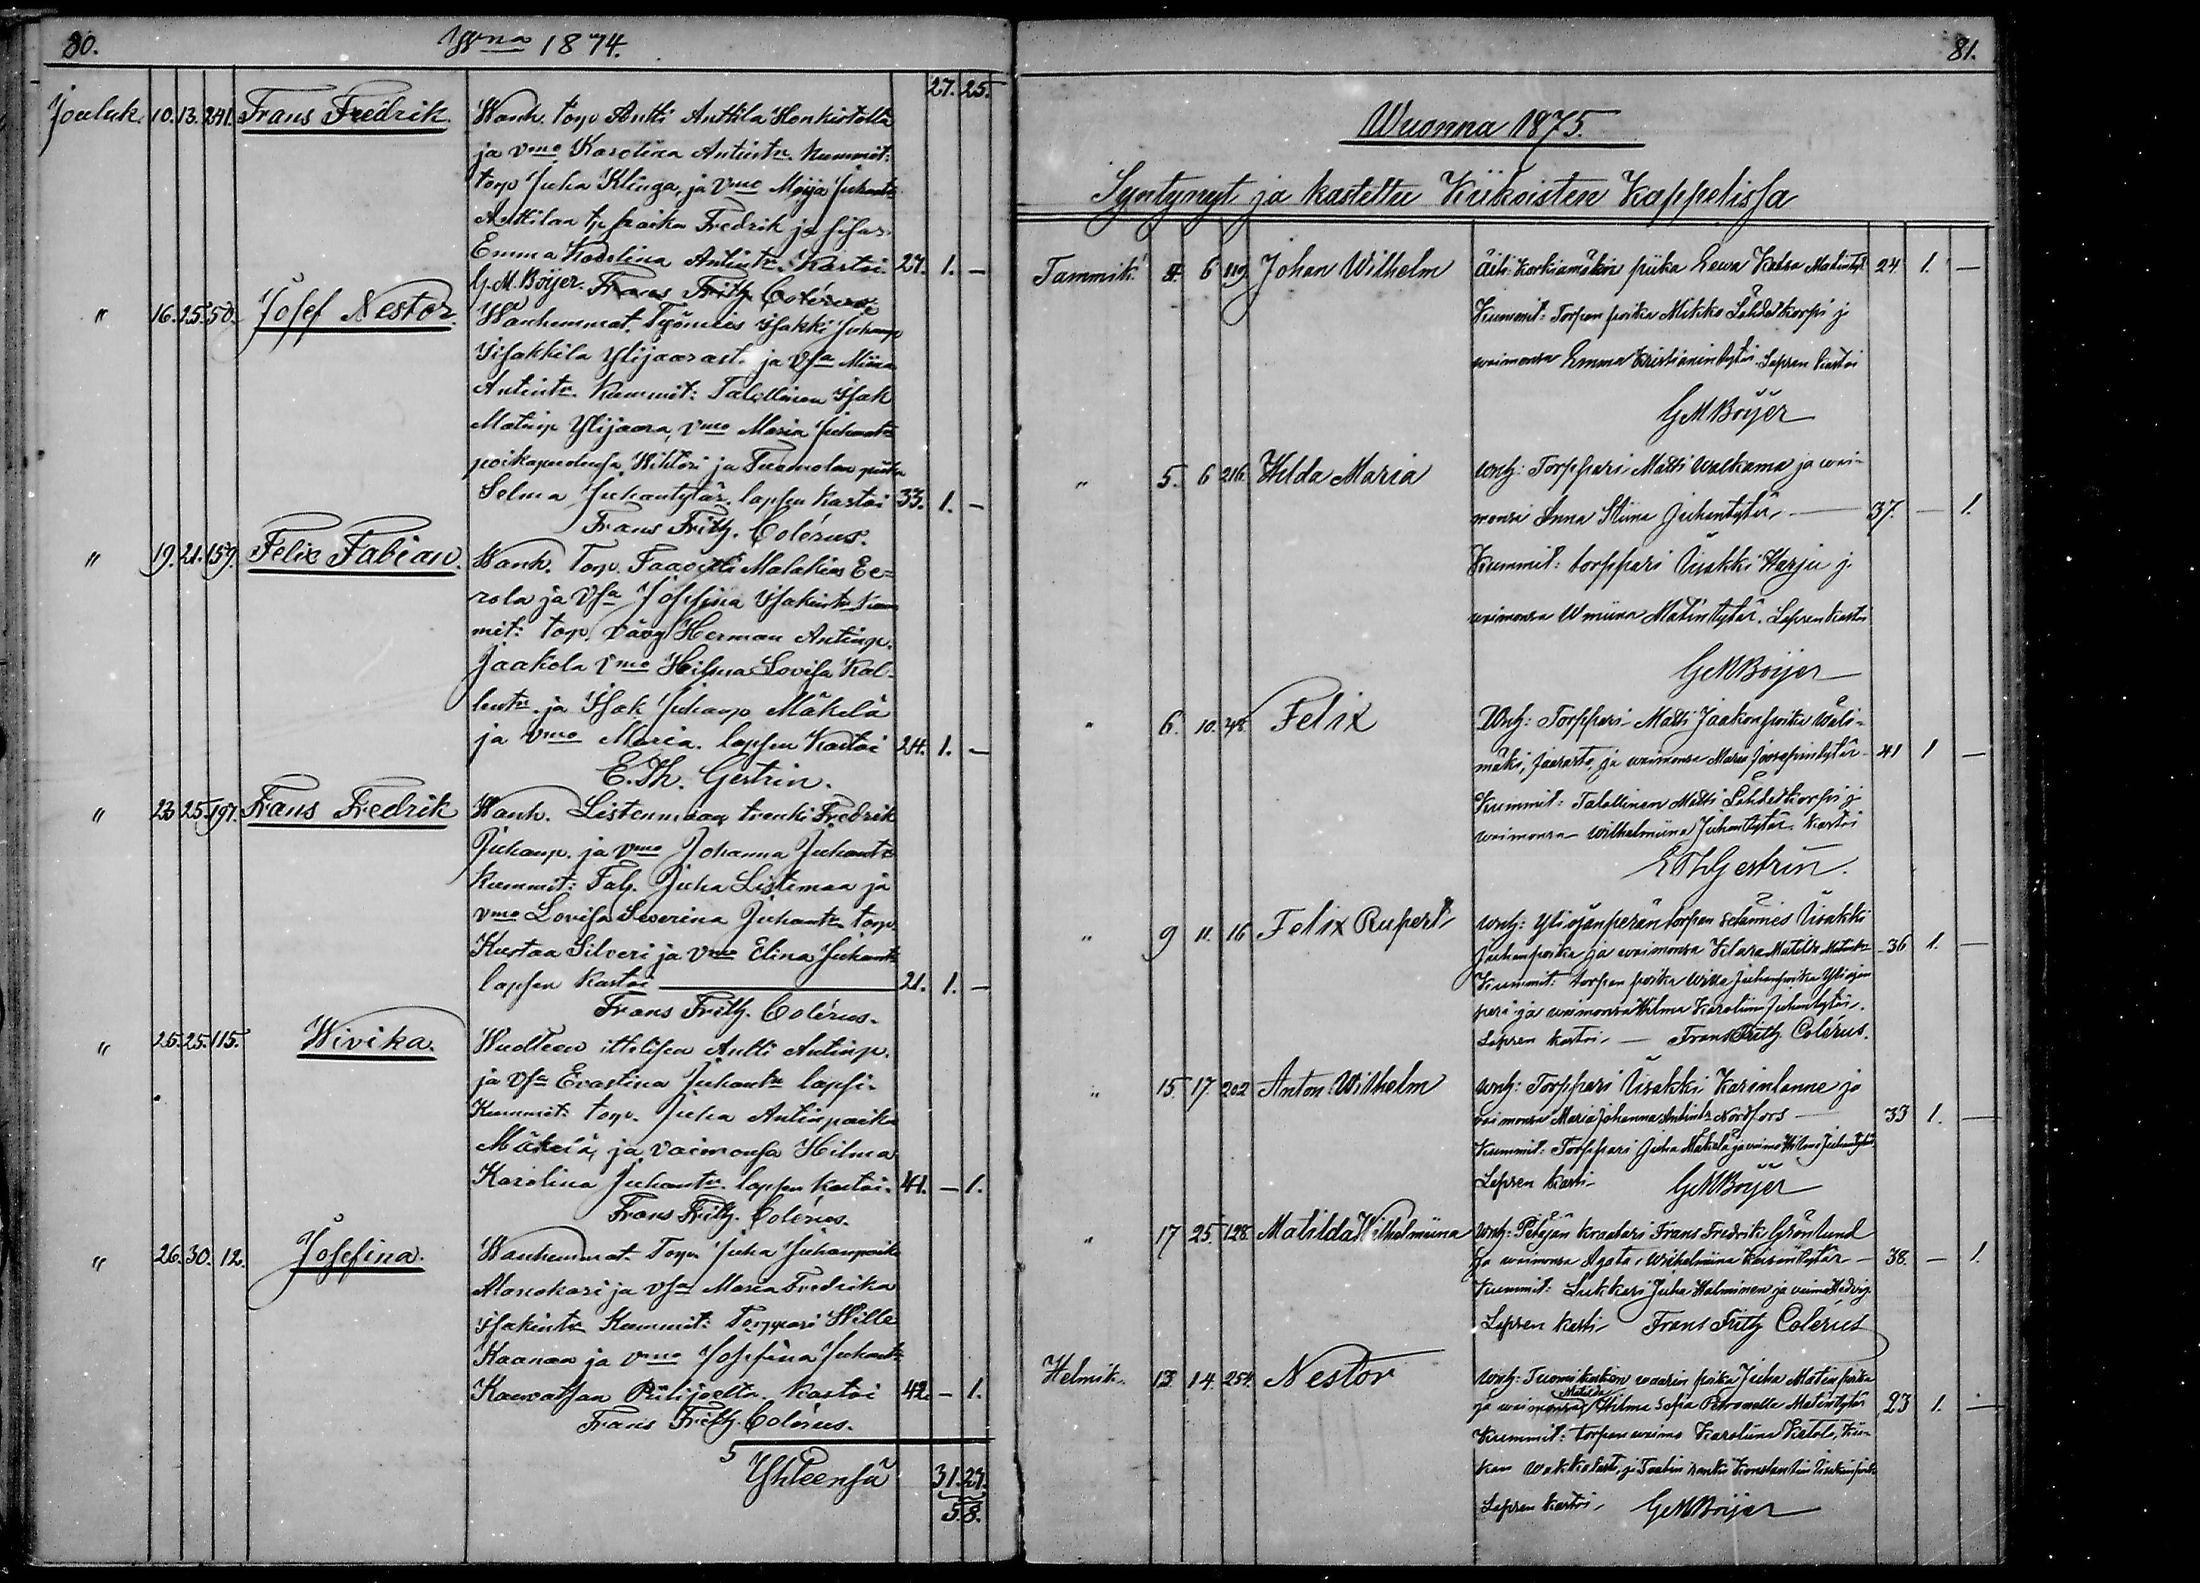 80. Wna 1874.
27. 25.
Jouluk. 10. 13. 241. Frans Fredrik. Wanh. torp. Antti Anttila Honkirtolta
ja vmo Karolina Antintr. Kummit:
torp Juha Klinga, ja vmo Maija Juhantr
Anttilan tp. poika Fredrik ja sisar
Emma Karolina Antintr. Kastoi 27. 1. —
G. M. Böijer. Frans Fritz. Colérus
" 16. 25. 50. Josef Nestor. Wanhemmat. Työmies Isakki Juhanp
Iisakkila Ylijaarast. ja Vsa Miina
Antintr. Kummit: Talollinen Isak
Matinp Ylijaara, vmo Maria Juhantr
poikapuolensa Wihtori ja Tuomolan piika
Selma Juhantytär. lapsen kastoi 33. 1. —
Frans Fritz. Colérus.
" 19. 21. 159. Felix Fabian. Wanh. Torp. Faavitti Malakias Ee=
rola ja Vsa Josefina Isakintr. Kum
mit: torp. vävy Herman Antinp.
Jaakola vmo Hilma Lovisa Kal-
lentr. ja Isak Juhanp Mäkelä
ja vmo Maria. lapsen Kastoi 24. 1. —
E. Th. Gestrin.
" 23. 25. 197. Frans Fredrik Wanh. Listenmaan trenki Fredrik
Juhanp. ja vmo Johanna Juhantr
Kummit: Tal. Juha Listenmaa ja
vmo Lovisa Severina Juhantr torp.
Kustaa Silveri ja vmo Elina Juhantr
lapsen kastoi 21. 1. —
Frans Fritz. Colérus.
" 25. 25. 115. Wivika. Wuolteen ittelisen Antti Antinp.
ja Vsa Evastina Juhantr lapsi.
Kummit: torp. Juha Antinpoika
Mäkelä, ja vaimonsa Hilma
Karolina Juhantr. lapsen kastoi. 41. — 1.
Frans Fritz. Colérus.
" 26. 30. 12. Josefina. Wanhemmat Torp. Juha Juhanpoika
Alanokari ja Vsa Maria Fredrika
Isakintr Kummit: Torppari Wille
Kaanaa ja vmo Josefina Juhantr
Kauvatsan Piilijoelta. kastoi 42. — 1.
Frans Fritz. Colérus.
Yhteensä 31. 27.
58.
81.
Wuonna 1875.
Syntynyt ja kastettu Kiikoisten Kappelissa
Tammik. 4. 6 119 Johan Wilhelm Äiti: Korkiamäkin piika Eewa Kaisa Matintyt 24 1. —
Kummit: Torpan poika Mikko Lähdekorpi ja
waimonsa Emma Kristianintytär. Lapsen kastoi
GMBöijer
" 5. 6 216. Hilda Maria wnh: Torppari Matti Walkama ja wai-
monsa Anna Stiina Juhantytär, — 37. — 1.
Kummit: torppari Iisakki Harju ja
waimonsa Wmiina Matintytär. Lapsen kastoi
GMBöijer
" 6. 10. 48. Felix Wnh: Torppari Matti Jaakonpoika Wäli-
mäki, Jaarasta, ja waimonsa Maria Joosepintytär 41 1 —
Kummit: Talollinen Matti Lähdekorpi ja
waimonsa Wilhelmiina Juhantytär. kastoi
EThGestrin.
" 9 11. 16 Felix Rupert wnh: Yliojanperän torpan Iisakki
Juhanpoika ja waimonsa Klara Matilda Matintr 36 1. —
Kummit: torpan poika Wille Juhanpoika Yliojan
perä ja waimonsa Hilma Karoliina Juhantytär.
Lapsen kastoi, — Frans Fritz. Colérus.
" 15. 17. 202 Anton Wilhelm wnh: Torppari Iisakki Karinlanne ja
waimonsa Maria Johanna Antintr Nordfors — 33 1. —
Kummit: Torppari Juha Mäkelä ja waimo Hilma Juhantytär
Lapsen kasti GMBöijer
" 17 25. 128. Matilda Wilhelmiina wnh: Pitäjän kraatari Frans Fredrik Grönlund
ja waimonsa Agata Wilhelmiina — 38. — 1.
Kummit: Lukkari Juha Halminen ja waimo Hedvig.
Lapsen kasti Frans Fritz Colérus
Helmik. 13. 14. 254. Nestor wnh: waarin poika Juha Matinpoika
Matilda
ja waimonsa Hilma Sofia Petronella Matintytär 23 1. —
Kummit: torpan waimo Karoliina
Lapsen kastoi, GMBöijer